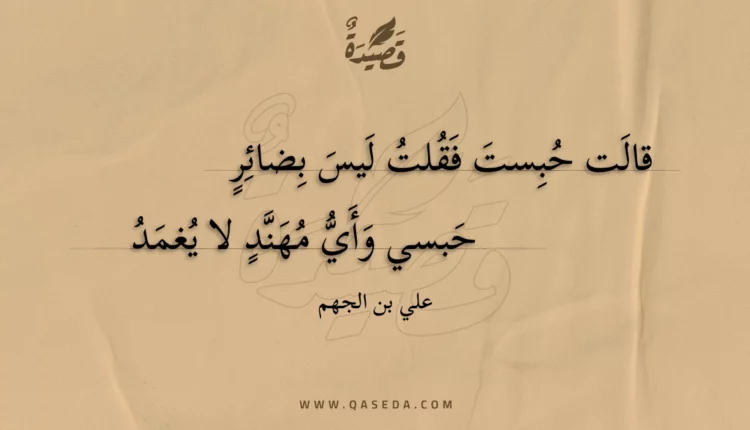 قَصِيدَةٌ
قالَت حُبِستَ فَقُلتُ لَيسَ بِضائِرٍ
حَبسي وَأَيُّ مُهَنَّدٍ لا يُغمَدُ
علي بن الجهم
WWW.QASEDA.COM